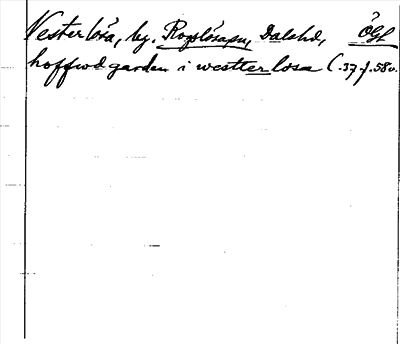 Vester lösa, by. Rogslösa sn, Dalshd, Ögl
hoffwdgarden i westter losa (.37.) 58v.